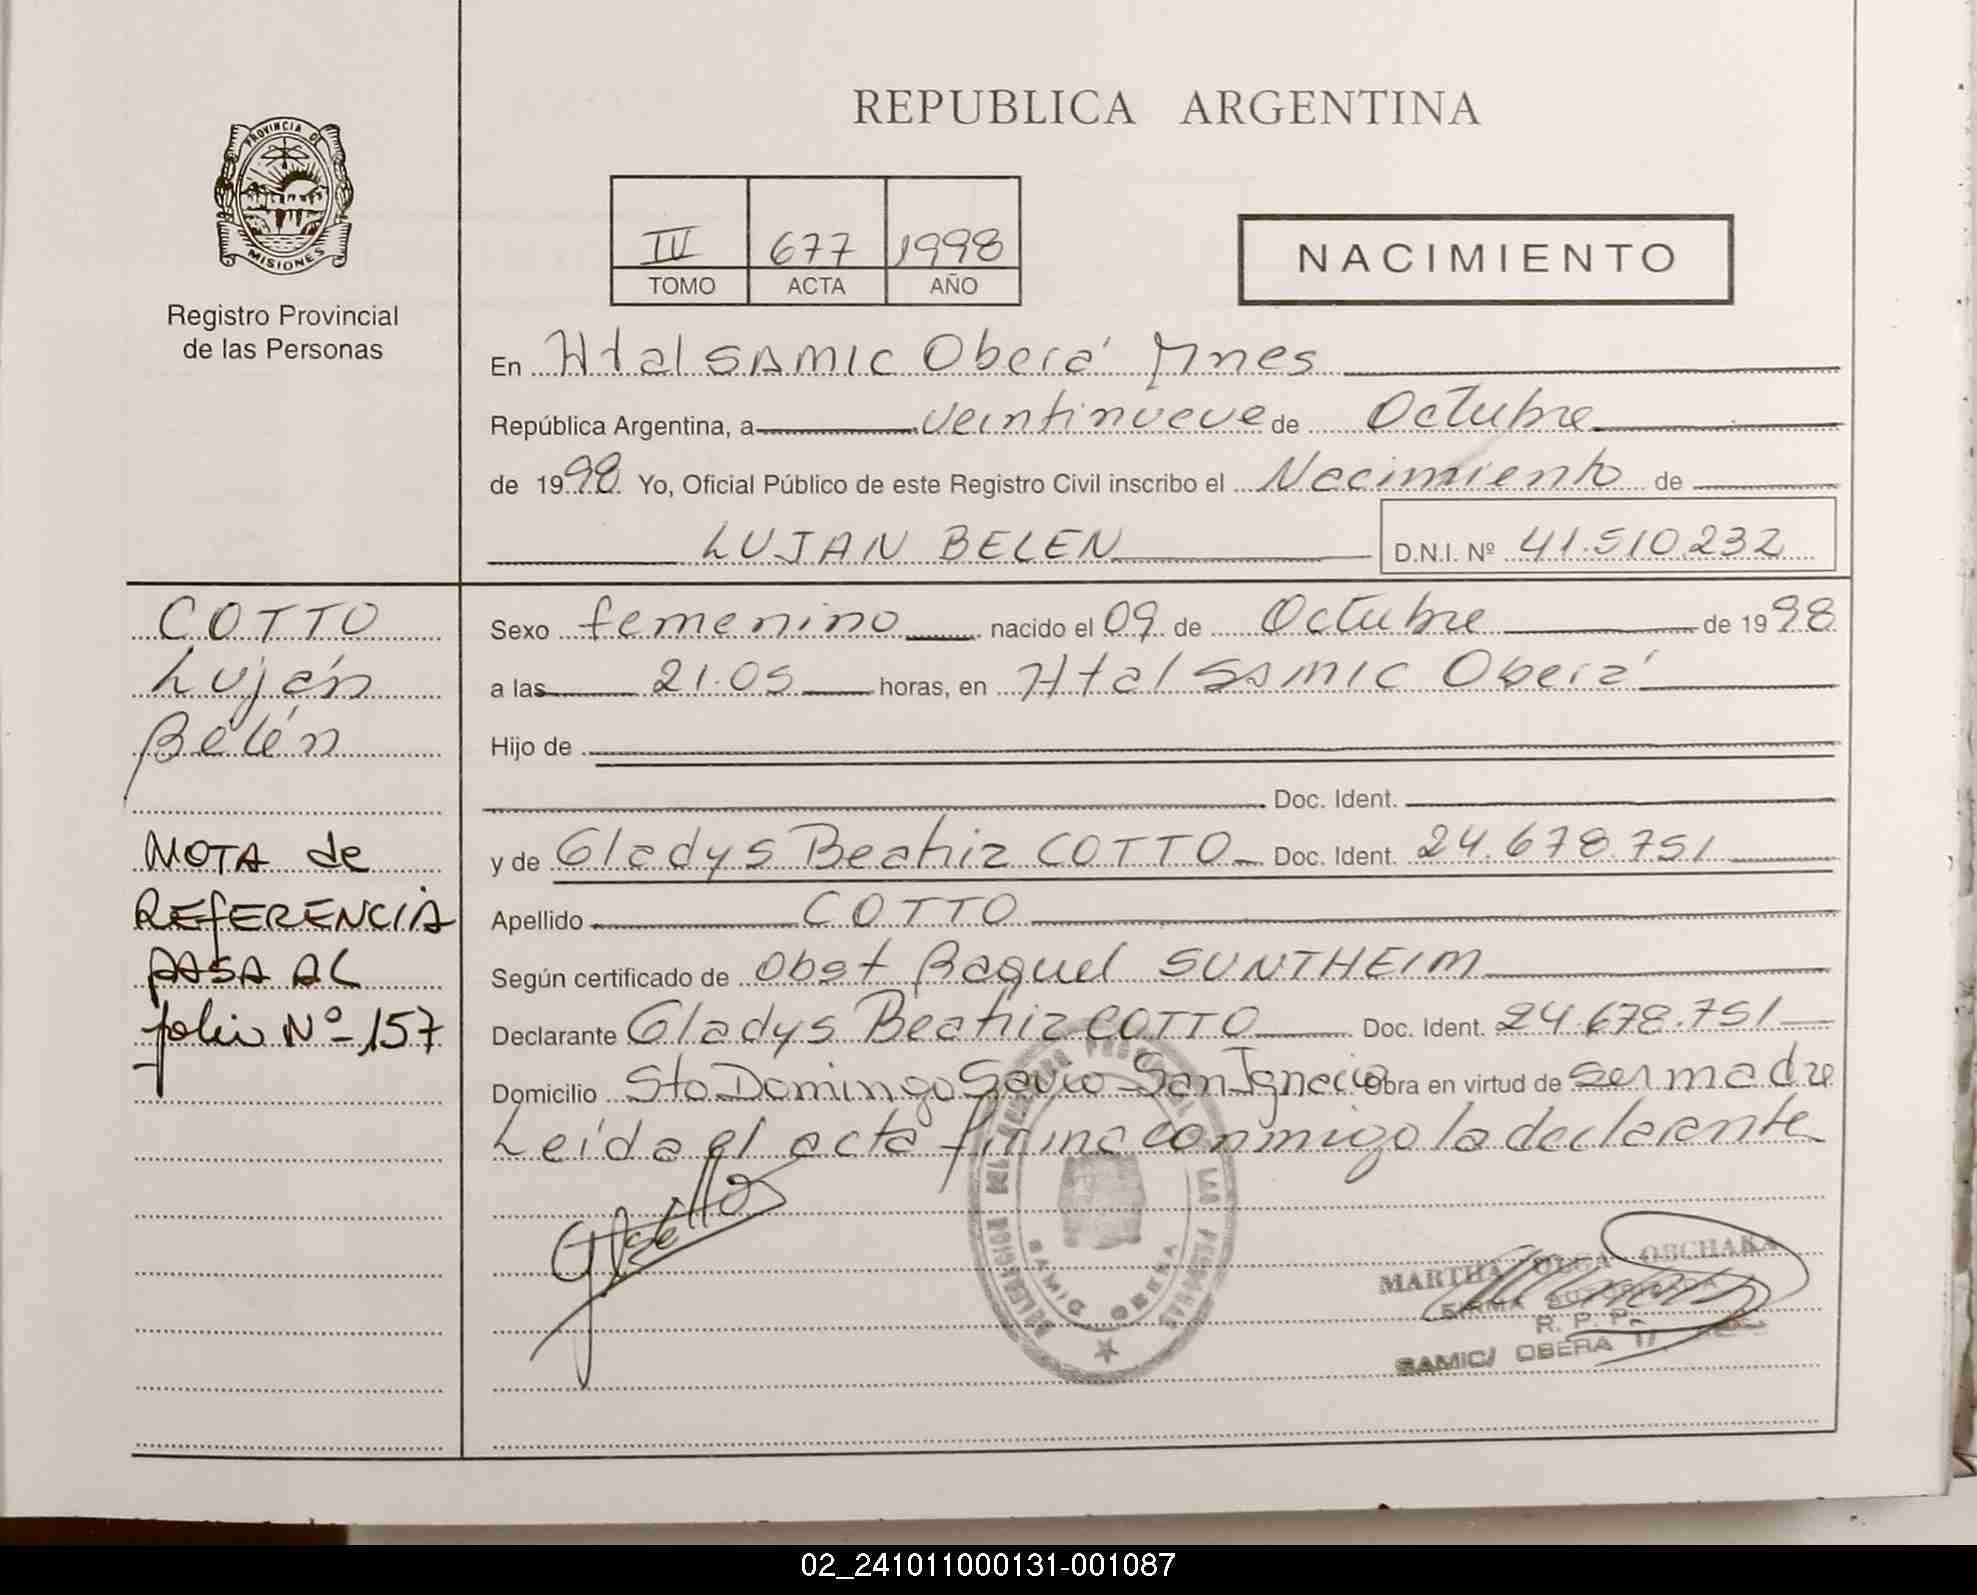 REPUBLICA ARGENTINA
PROVINCIA DE
MISIONES
Registro Provincial
de las Personas
677 1998
TOMO ACTA AÑO
NACIMIENTO
En Htal SAMIC Oberá Mnes
República Argentina, a veintinueve de Octubre
de 1998 Yo, Oficial Público de este Registro Civil inscribo el Nacimiento de
LUJAN BELEN D.N.I. Nº 41.510.232
COTTO
Luján
Belén
NOTA de
REFERENCIA
PASA AL
folio Nº 157
Sexo femenino nacido el 09 de Octubre de 1998
a las 21.05 horas, en Htal SAMIC Oberá
Hijo de
Doc. Ident.
y de Gladys Beatriz COTTO Doc. Ident. 24.678.751
Apellido COTTO
Según certificado de Obst Raquel SUNTHEIM
Declarante Gladys Beatriz COTTO Doc. Ident. 24.678.751
Domicilio Sto Domingo Savio San Ignacio Obra en virtud de ser madre
Leída el acta firma conmigo la declarante
SAMIC OBERA
MARTHA OLGA OBCHAKA
FIRMA AUTORIZADA
R. P. P.
SAMIC/ OBERA
02_241011000131-001087